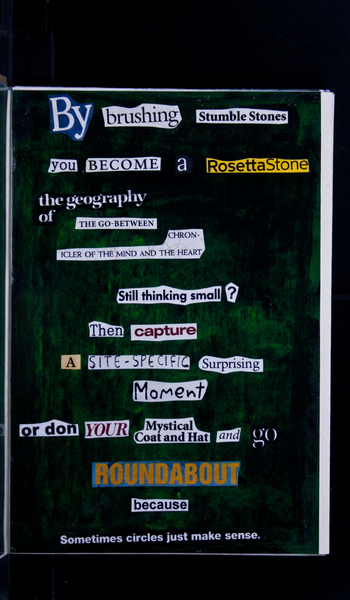 By brushing Stumble Stones
you BECOME a RosettaStone
the geography
of THE GO-BETWEEN
CHRON-
ICLER OF THE MIND AND THE HEART
Still thinking small ?
Then capture
A SITE-SPECIFIC Surprising
Moment
or don YOUR Mystical
Coat and Hat and go
ROUNDABOUT
because
Sometimes circles just make sense.